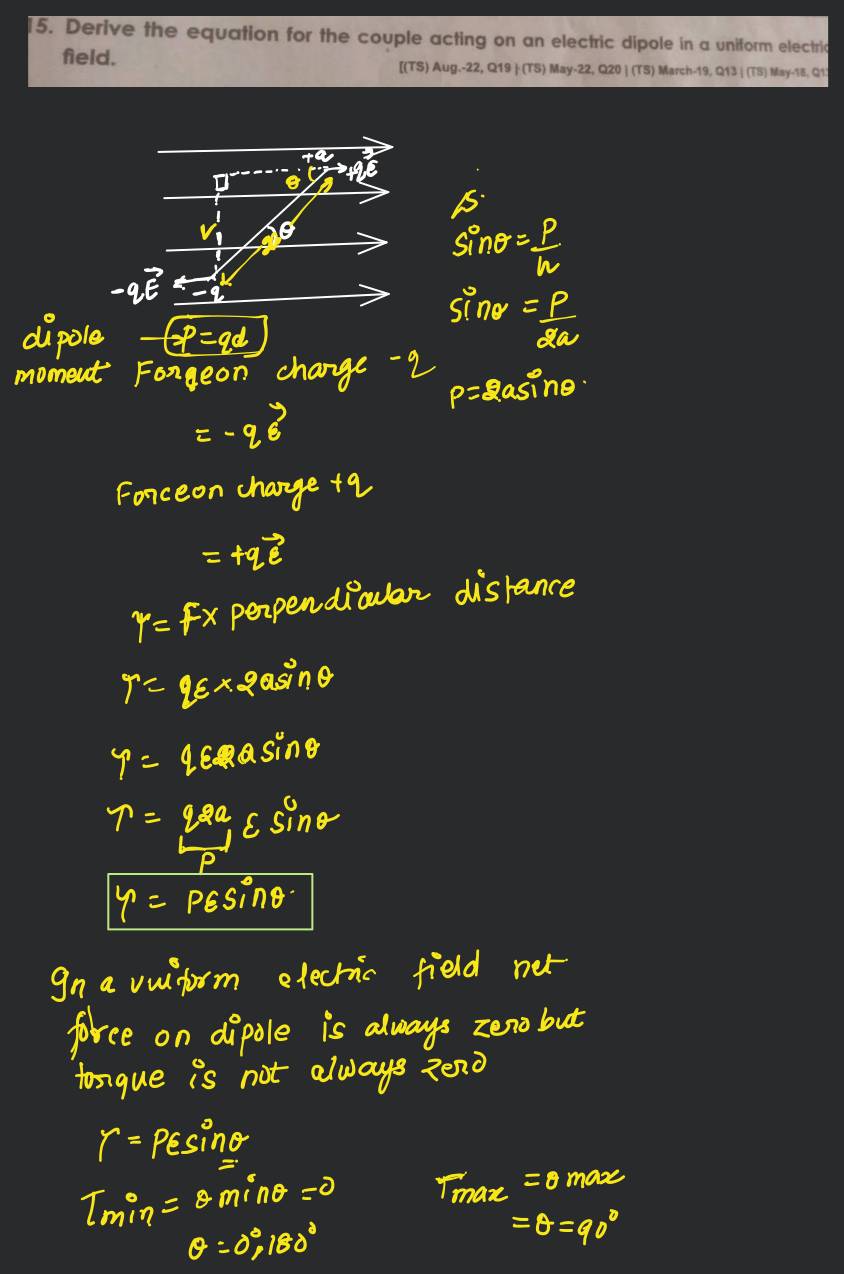 15. Derive the equation for the couple acting on an electric dipole in a uniform electric
field.
[(TS) Aug.-22, Q19 | (TS) May-22, Q20 | (TS) March-19, Q13 | (TS) May-18, Q1
+q
+qE⃗
θ
θ
2a
-qE⃗
-q
sinθ = P/h
sinθ = P/2a
P=2asinθ.
dipole → P=qd
moment
Force on charge -q
= -qE⃗
Force on charge +q
= +qE⃗
τ= F× perpendicular distance
τ= qE×2asinθ
τ= qE2asinθ
τ = q2a E sinθ
P
τ = PEsinθ.
In a uniform electric field net
force on dipole is always zero but
torque is not always zero
τ = PEsinθ
τmin = θ minθ =0
θ =0°,180°
τmax = θ max
= θ = 90°